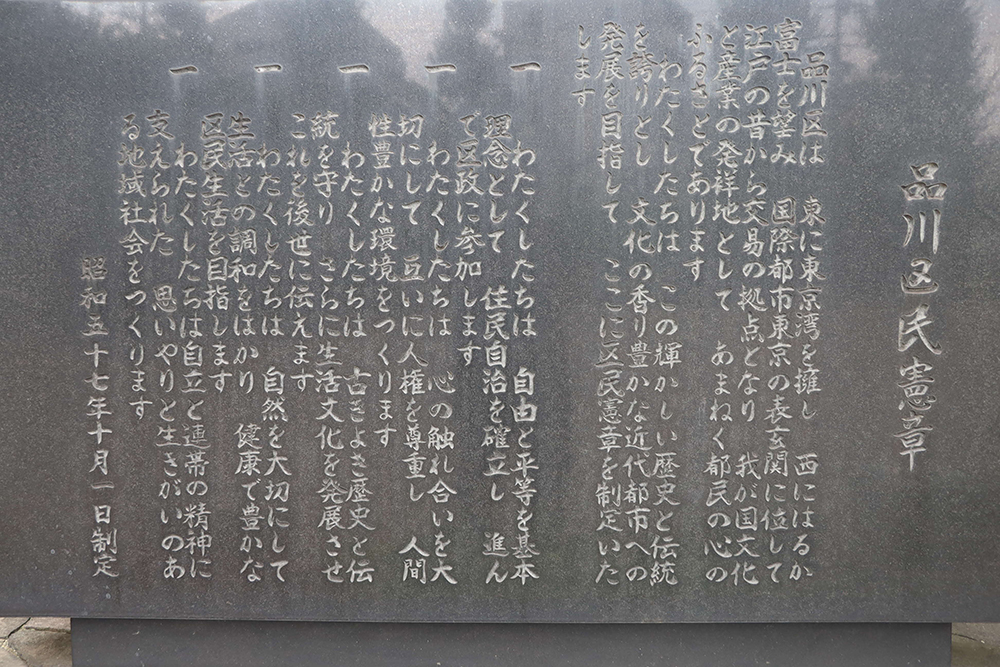 品川区民憲章
品川区は 東に東京湾を擁し 西にはるか
富士を望み 国際都市東京の表玄関に位して
江戸の昔から交易の拠点となり 我が国文化
と産業の発祥地として あまねく都民の心の
ふるさとであります
わたくしたちは この輝かしい歴史と伝統
を誇りとし 文化の香り豊かな近代都市への
発展を目指して ここに区民憲章を制定いた
します
一 わたくしたちは 自由と平等を基本
理念として 住民自治を確立し 進ん
で区政に参加します
一 わたくしたちは 心の触れ合いを大
切にして 互いに人権を尊重し 人間
性豊かな環境をつくります
一 わたくしたちは 古きよき歴史と伝
統を守り さらに生活文化を発展させ
これを後世に伝えます
一 わたくしたちは 自然を大切にして
生活との調和をはかり 健康で豊かな
区民生活を目指します
一 わたくしたちは自立と連帯の精神に
支えられた 思いやりと生きがいのあ
る地域社会をつくります
昭和五十七年十月一日制定